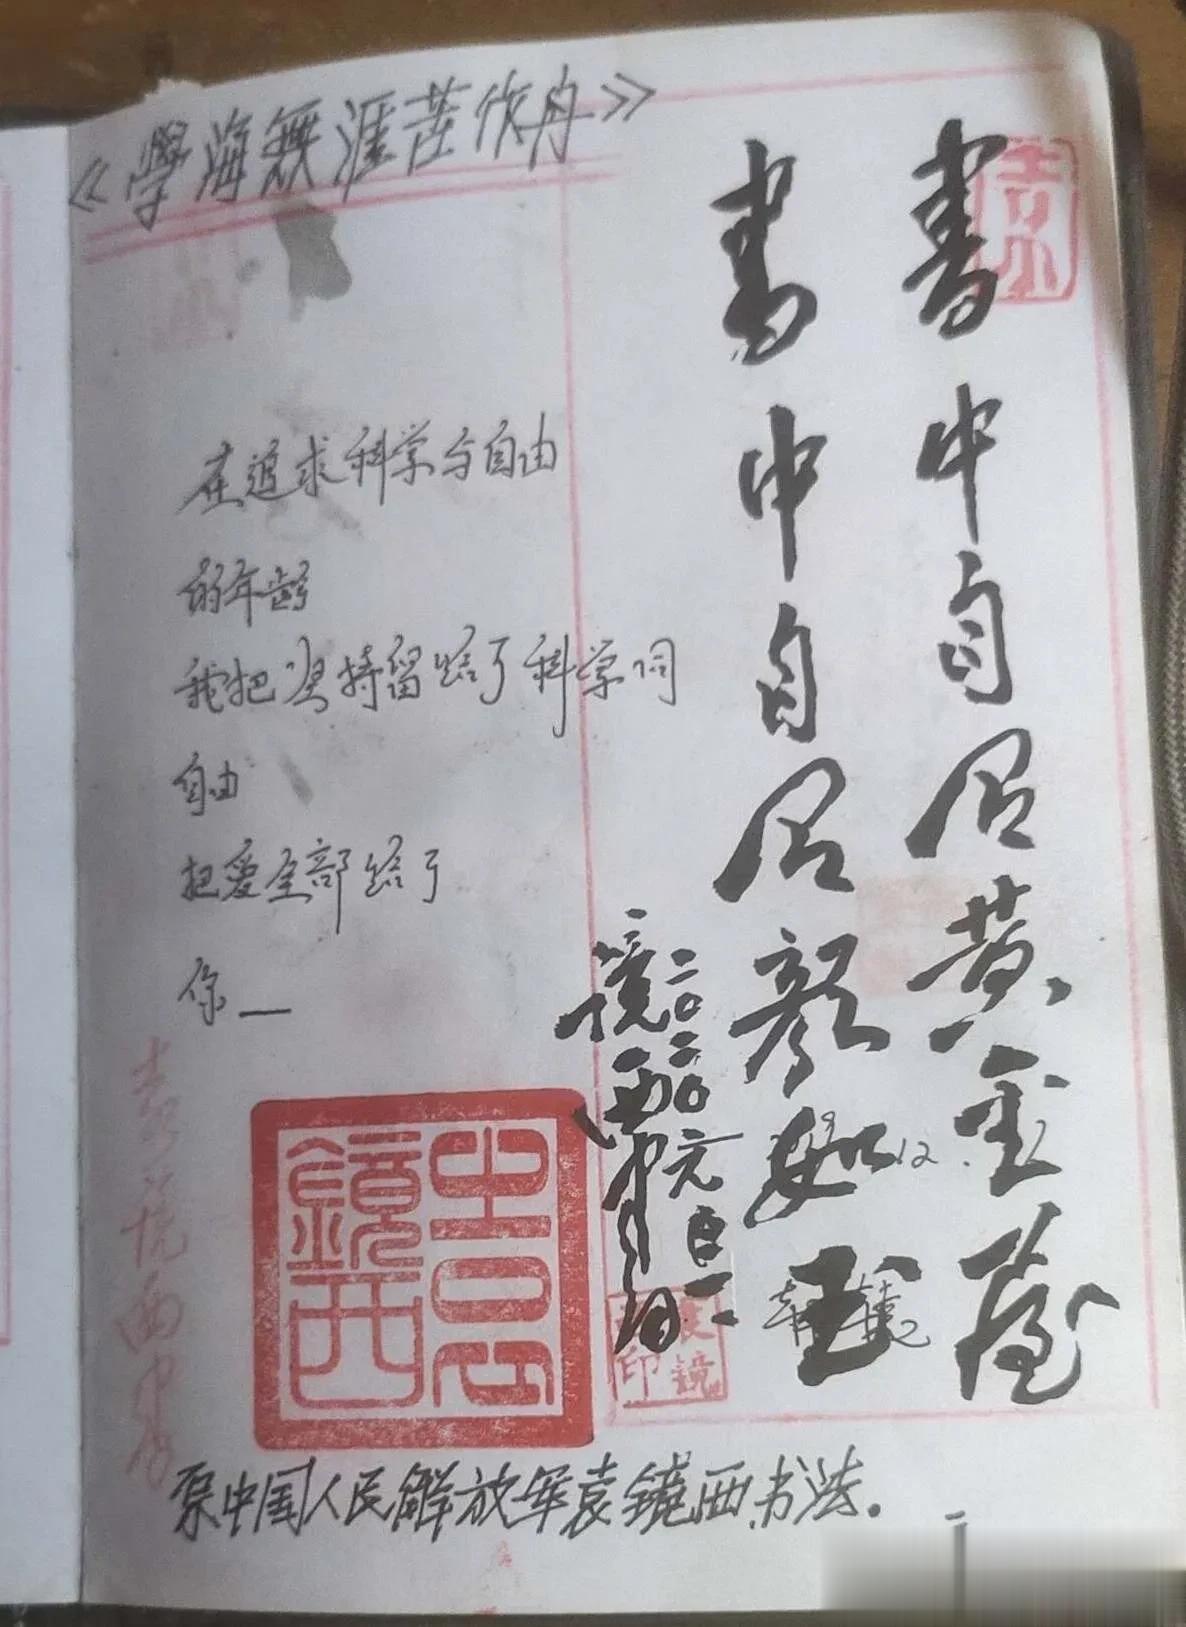 《學海無涯苦作舟》
書中自有黄金屋
書中自有顔如玉
二〇二〇元旦
鏡西
在追求科学与自由
的年龄
我把坚持留给了科学同
自由
把爱全部给了
你—
袁鏡西
袁镜
印
原中国人民解放军袁镜西书法。